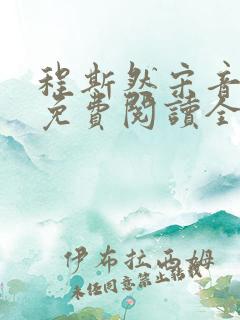 程斯然宋音
免費閱讀全
伊布拉西姆
未经同意禁止转载